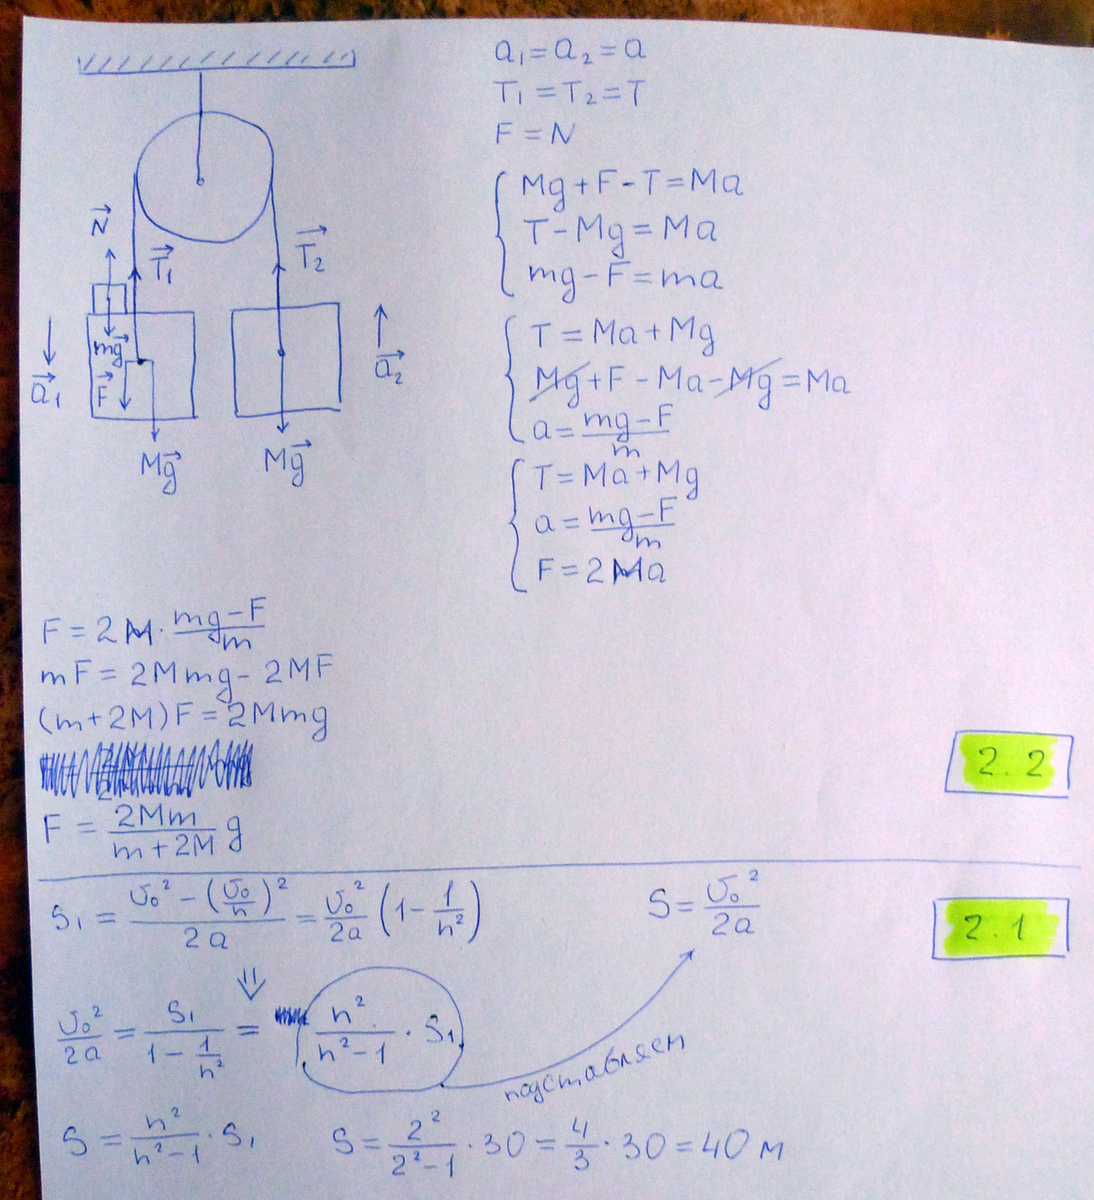 a₁ = a₂ = a
T₁ = T₂ = T
F = N
Mg + F - T = Ma
T - Mg = Ma
mg - F = ma
T = Ma + Mg
Mg + F - Ma - Mg = Ma
a = (mg - F)/m
T = Ma + Mg
a = (mg - F)/m
F = 2Ma
N⃗
T⃗₁
T⃗₂
mg⃗
F⃗
a⃗₁
a⃗₂
Mg⃗
Mg⃗
F = 2M · (mg - F)/m
mF = 2Mmg - 2MF
(m + 2M)F = 2Mmg
F = 2Mm/(m + 2M) g
2.2
S₁ = (v₀² - (v₀/n)²)/2a = v₀²/2a (1 - 1/n²)
S = v₀²/2a
2.1
⇓
v₀²/2a = S₁/(1 - 1/n²) = n²/(n² - 1) · S₁
подставляем
S = n²/(n² - 1) · S₁
S = 2²/(2² - 1) · 30 = 4/3 · 30 = 40 м